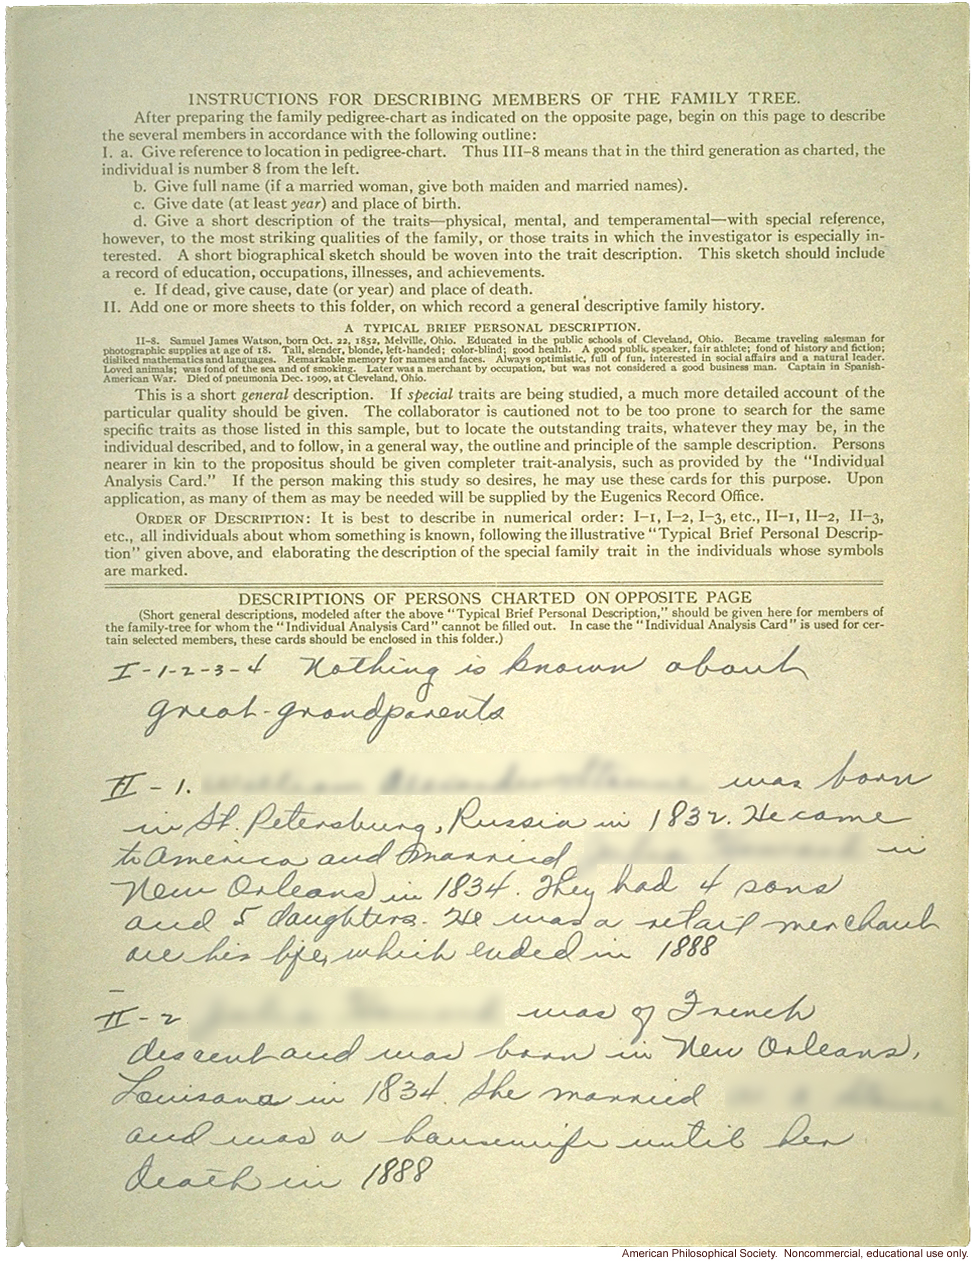 INSTRUCTIONS FOR DESCRIBING MEMBERS OF THE FAMILY TREE.
After preparing the family pedigree-chart as indicated on the opposite page, begin on this page to describe
the several members in accordance with the following outline:
I. a. Give reference to location in pedigree-chart. Thus III–8 means that in the third generation as charted, the
individual is number 8 from the left.
b. Give full name (if a married woman, give both maiden and married names).
c. Give date (at least year) and place of birth.
d. Give a short description of the traits—physical, mental, and temperamental—with special reference,
however, to the most striking qualities of the family, or those traits in which the investigator is especially in-
terested. A short biographical sketch should be woven into the trait description. This sketch should include
a record of education, occupations, illnesses, and achievements.
e. If dead, give cause, date (or year) and place of death.
II. Add one or more sheets to this folder, on which record a general descriptive family history.
A TYPICAL BRIEF PERSONAL DESCRIPTION.
II–8. Samuel James Watson, born Oct. 22, 1852, Melville, Ohio. Educated in the public schools of Cleveland, Ohio. Became traveling salesman for
photographic supplies at age of 18. Tall, slender, blonde, left-handed; color-blind; good health. A good public speaker, fair athlete; fond of history and fiction;
disliked mathematics and languages. Remarkable memory for names and faces. Always optimistic, full of fun, interested in social affairs and a natural leader.
Loved animals; was fond of the sea and of smoking. Later was a merchant by occupation, but was not considered a good business man. Captain in Spanish-
American War. Died of pneumonia Dec. 1909, at Cleveland, Ohio.
This is a short general description. If special traits are being studied, a much more detailed account of the
particular quality should be given. The collaborator is cautioned not to be too prone to search for the same
specific traits as those listed in this sample, but to locate the outstanding traits, whatever they may be, in the
individual described, and to follow, in a general way, the outline and principle of the sample description. Persons
nearer in kin to the propositus should be given completer trait-analysis, such as provided by the “Individual
Analysis Card.” If the person making this study so desires, he may use these cards for this purpose. Upon
application, as many of them as may be needed will be supplied by the Eugenics Record Office.
ORDER OF DESCRIPTION: It is best to describe in numerical order: I–1, I–2, I–3, etc., II–1, II–2, II–3,
etc., all individuals about whom something is known, following the illustrative “Typical Brief Personal Descrip-
tion” given above, and elaborating the description of the special family trait in the individuals whose symbols
are marked.
DESCRIPTIONS OF PERSONS CHARTED ON OPPOSITE PAGE
(Short general descriptions, modeled after the above “Typical Brief Personal Description,” should be given here for members of
the family-tree for whom the “Individual Analysis Card” cannot be filled out. In case the “Individual Analysis Card” is used for cer-
tain selected members, these cards should be enclosed in this folder.)
I-1-2-3-4 Nothing is known about
great-grandparents
II-1. was born
in St. Petersburg, Russia in 1832. He came
to America and married in
New Orleans in 1834. They had 4 sons
and 5 daughters. He was a retail merchant
all his life, which ended in 1888
II-2 was of French
descent and was born in New Orleans,
Louisana in 1834. She married
and was a housewife until her
death in 1888
American Philosophical Society. Noncommercial, educational use only.